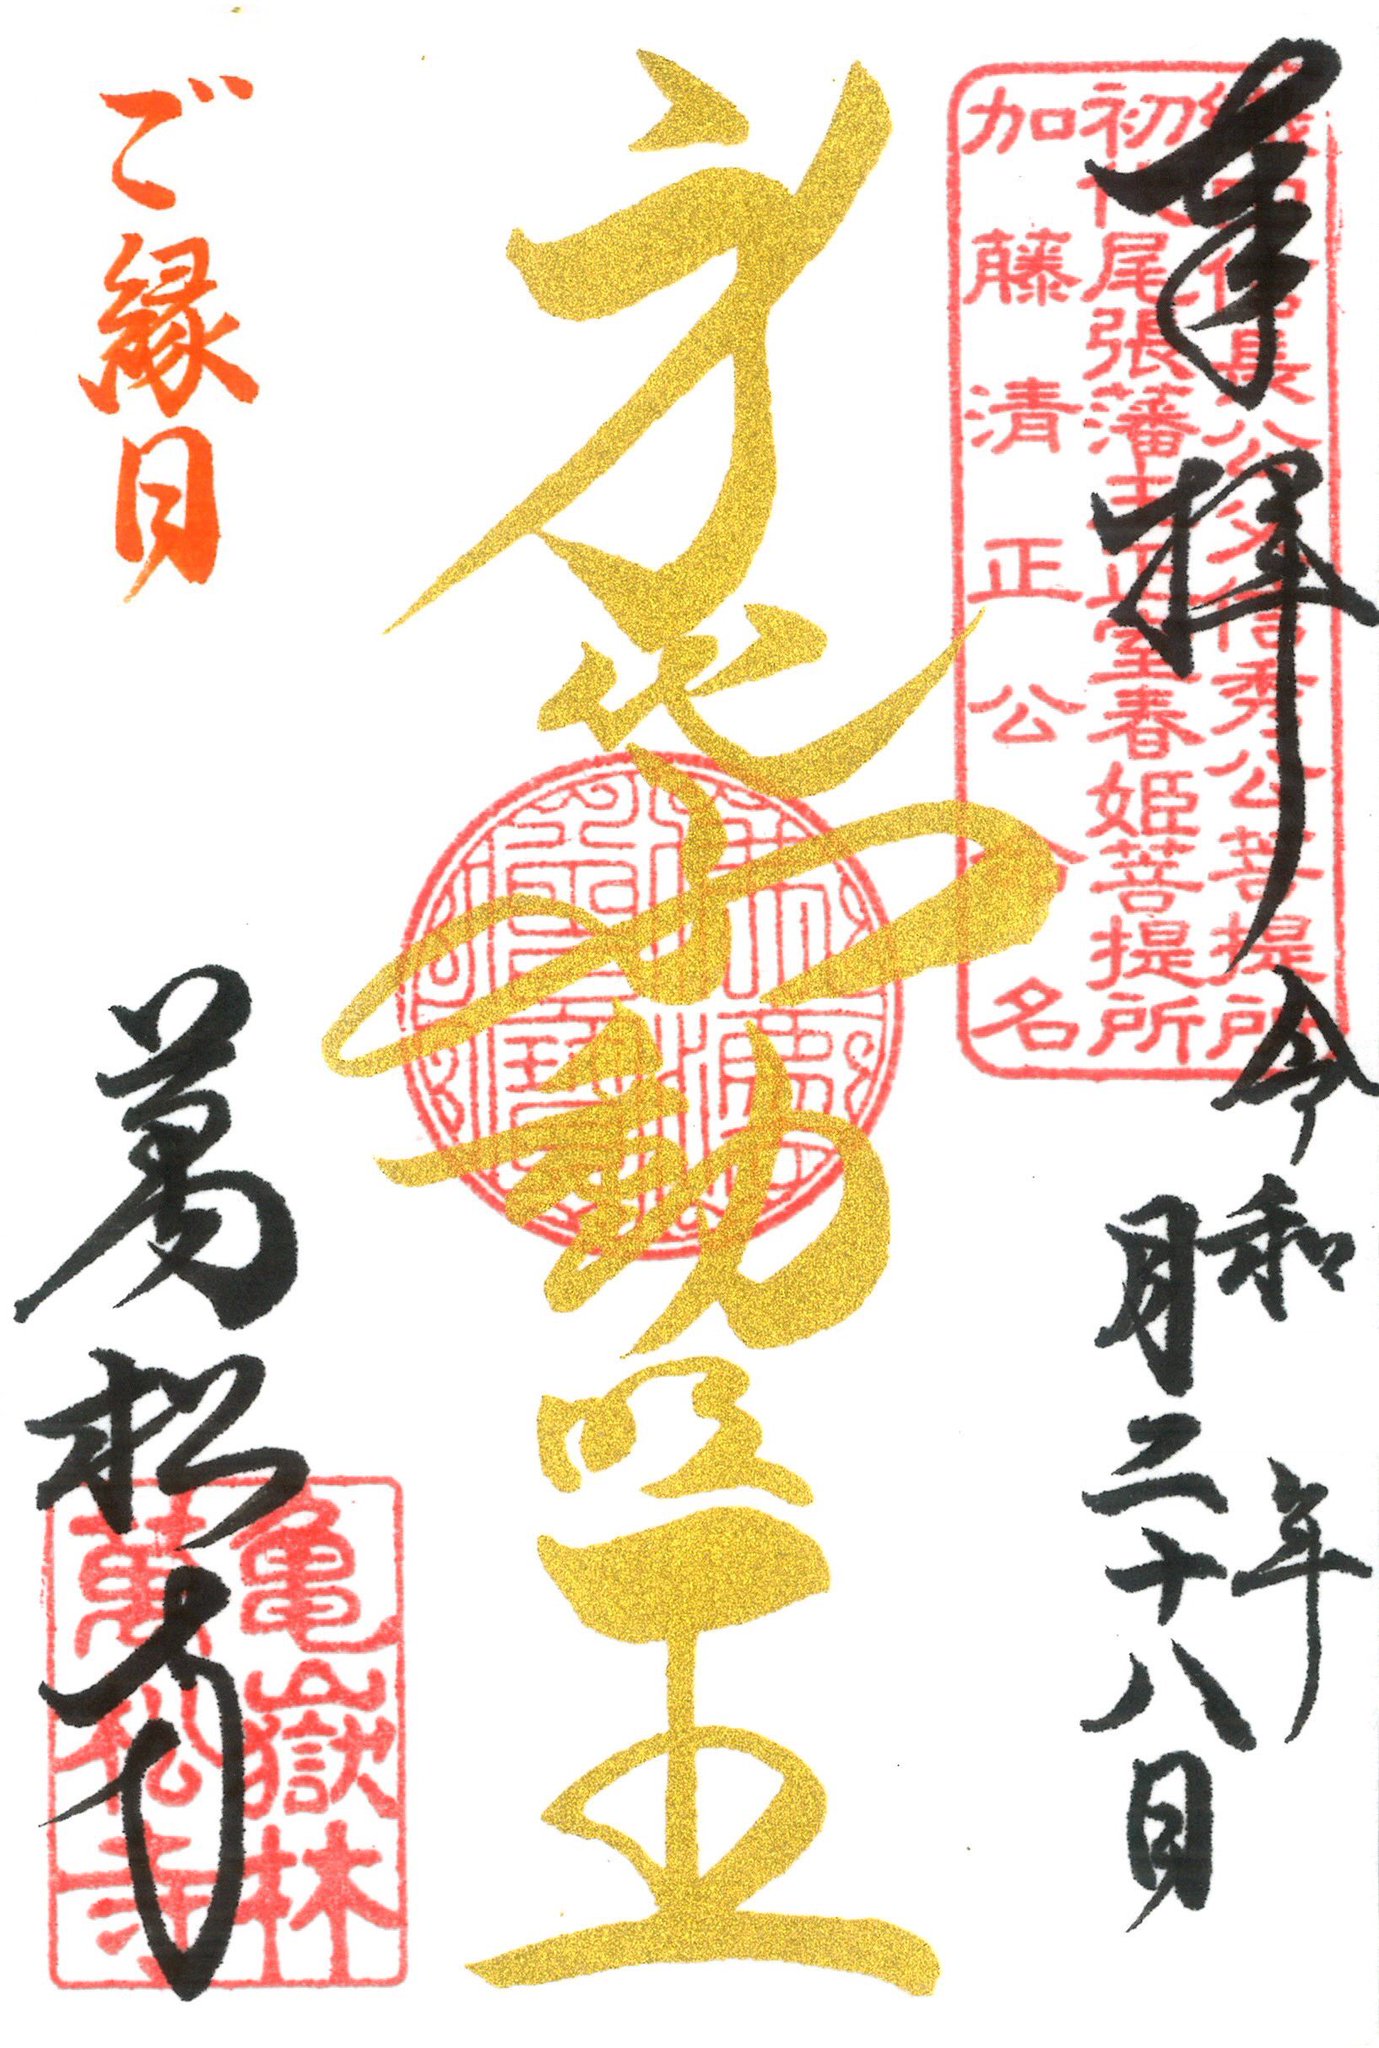 奉拝
令和 年
月二十八日
織田信長公父信秀公菩提所
初代尾張藩主正室春姫菩提所
加藤清正公命名
身代不動明王
ご縁日
萬松寺
亀嶽林
萬松寺